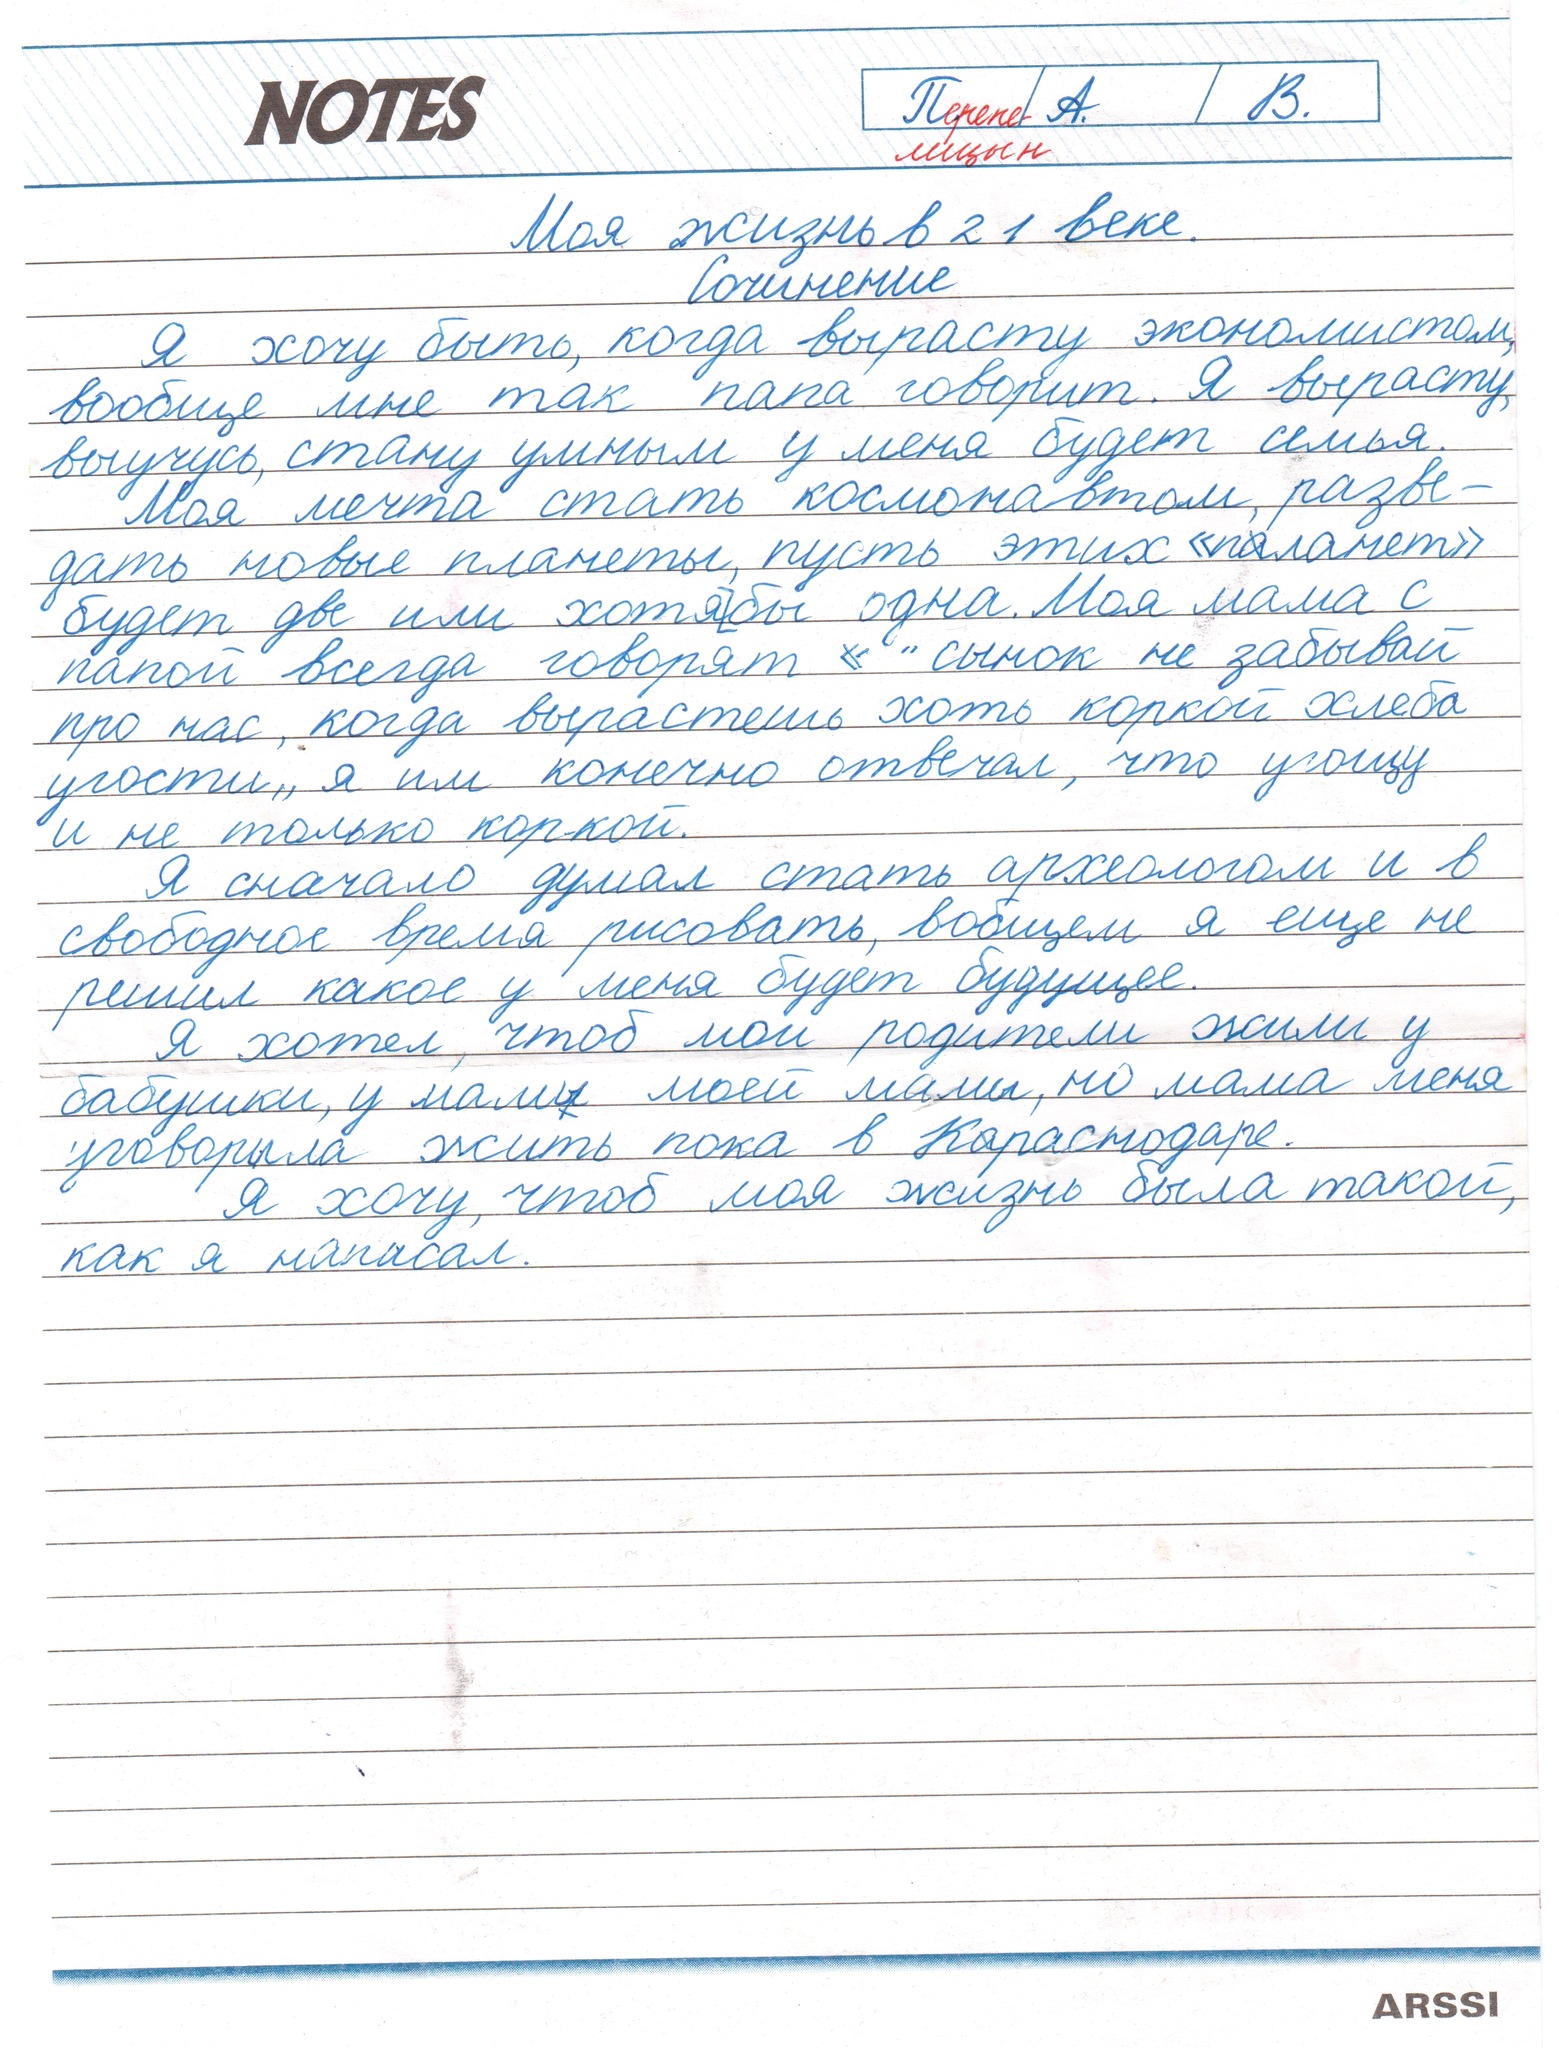 NOTES
Перепе А. В.
лицын
Моя жизнь в 21 веке.
Сочинение
Я хочу быть, когда вырасту экономистом,
вообще мне так папа говорит. Я вырасту,
выучусь, стану умным у меня будет семья.
Моя мечта стать космонавтом, разве-
дать новые планеты, пусть этих «планет»
будет две или хотя бы одна. Моя мама с
папой всегда говорят « " сынок не забывай
про нас, когда вырастешь хоть коркой хлеба
угости„ я им конечно отвечал, что угощу
и не только коркой.
Я сначало думал стать археологом и в
свободное время рисовать, вобщем я еще не
решил какое у меня будет будущее.
Я хотел, чтоб мои родители жили у
бабушки, у мамы моей мамы, но мама меня
уговорила жить пока в Караснодаре.
Я хочу, чтоб моя жизнь была такой,
как я написал.
ARSSI